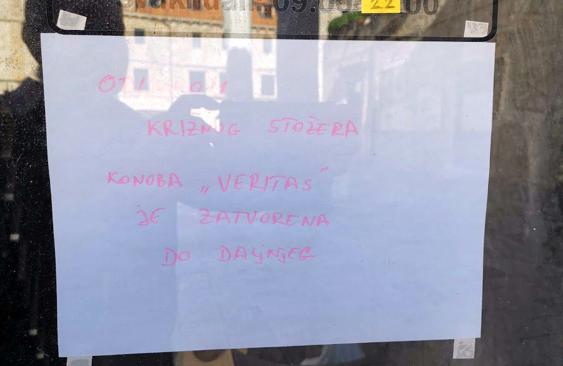 22
KRIZNOG STOŽERA
KONOBA „VERITAS"
JE ZATVORENA
DO DALJNJEG